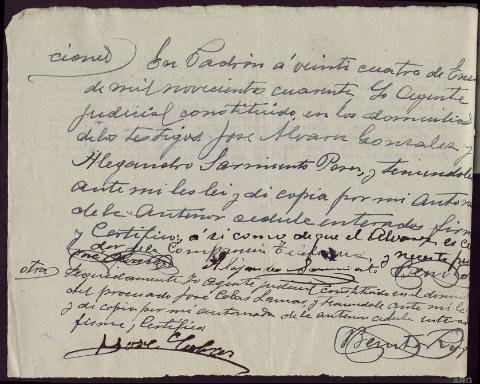 ciones En Padrón á veinte cuatro de Ene
de mil noveciento cuarenta Yo Agente
judicial constituido en los domicilio
de los testigos José Alvara Gonzalez y
Alegandro Sarmiento Poso, y teniendole
ante mi les lei y di copia por mi autori
de la Anterior cedule interado firm
y Certifico; á si como de que el Alvara es c
dor de la Compania y nececite pue
José Alvara Alejandro Sarmiento Benito R
otra Seguidamente Yo Agente judicial constituido en el domici
del procesado José Colas Lamas, y teniendole ante mi le
y di copia por mi autorizada de la anterior cedula intera
firme, Certifico
Jose Benito R
ARG